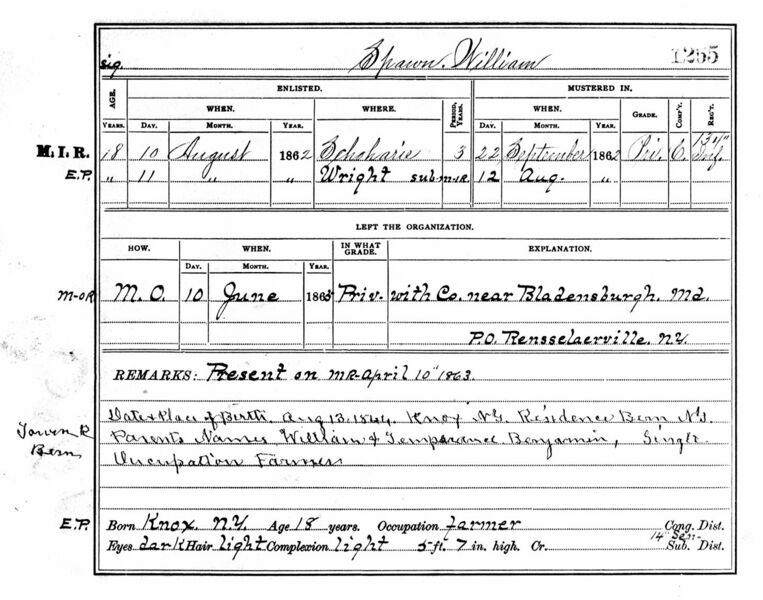 sig. Spawn. William 1255
AGE. ENLISTED. MUSTERED IN.
WHEN. WHERE. PERIOD, YEARS. WHEN. GRADE. COMP'Y. REG'T.
YEARS. DAY. MONTH. YEAR. DAY. MONTH. YEAR.
M. I. R. 18 10 August 1862 Schoharie 3 22 September 1862 Pri. C. 134" Inf.
E.P. " 11 " " Wright sub. m-i-R. 12 Aug. "
LEFT THE ORGANIZATION.
HOW. WHEN. IN WHAT GRADE. EXPLANATION.
DAY. MONTH. YEAR.
m-oR M. O. 10 June 1865 Priv. with Co. near Bladensburgh. Md.
P.O. Rensselaerville. N.Y.
REMARKS: Present on MR-April 10" 1863.
Date & Place of Birth. Aug 13. 1844. Knox N.Y. Residence Bern N.Y.
Town R Parents Names William & Temperance Benjamin, Single
Bern Occupation Farmer
E.P. Born Knox. N.Y. Age 18 years. Occupation farmer Cong. Dist.
Eyes dark Hair light Complexion light 5 ft. 7 in. high. Cr. 14" Sen. Sub. Dist.